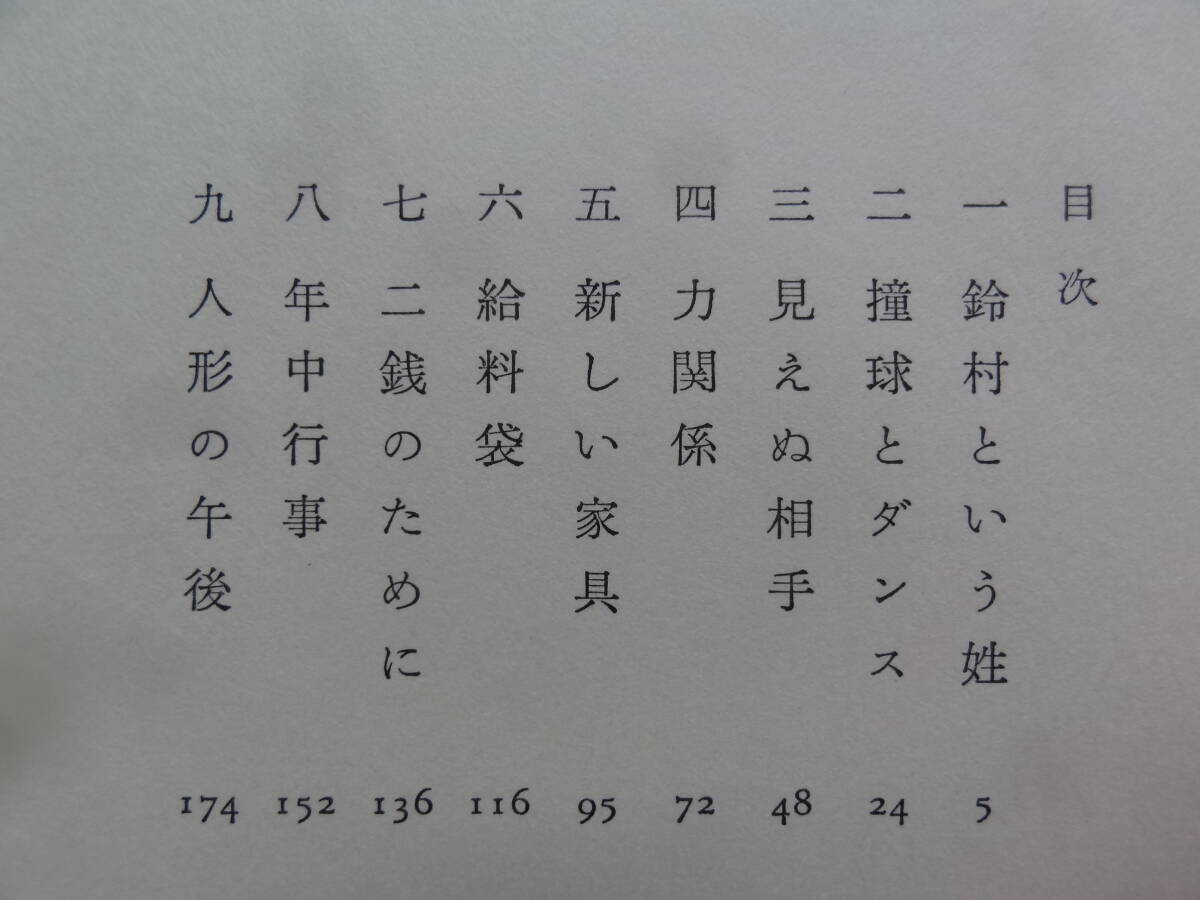 目次
一 鈴村という姓 5
二 撞球とダンス 24
三 見えぬ相手 48
四 力関係 72
五 新しい家具 95
六 給料袋 116
七 二銭のために 136
八 年中行事 152
九 人形の午後 174